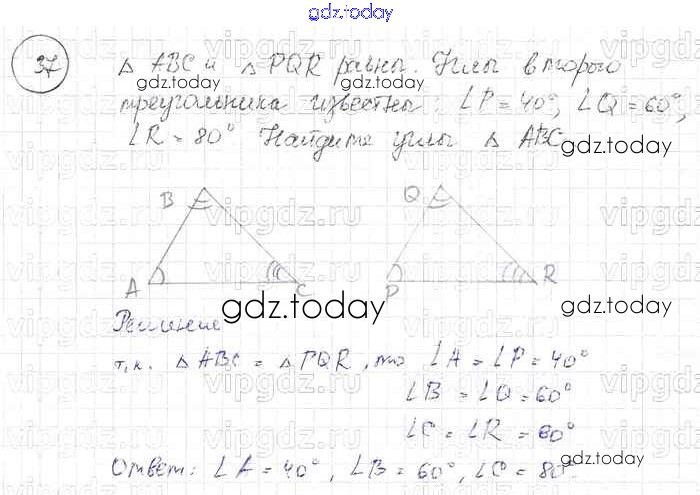 gdz.today
37
△ ABC и △ PQR равны. Углы второго
треугольника известны: ∠P = 40°, ∠Q = 60°,
∠R = 80° Найдите углы △ ABC
gdz.today
B Q
A C P R
gdz.today gdz.today
Решение
т.к. △ ABC = △ PQR, то ∠A = ∠P = 40°
∠B = ∠Q = 60°
∠C = ∠R = 80°
gdz.today
Ответ: ∠A = 40°, ∠B = 60°, ∠C = 80°
gdz.today
vipgdz.ru